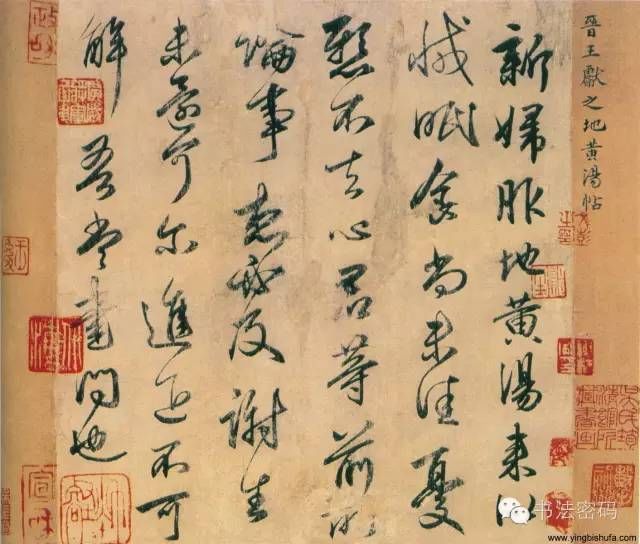 晉王獻之地黃湯帖
新婦服地黃湯來似
減眠食尚未佳憂
懸不去心君等前所
論事想必及謝生
未還可尔進退不可
解吾當書問也
政和
宣和
书法密码
www.yingbishufa.com